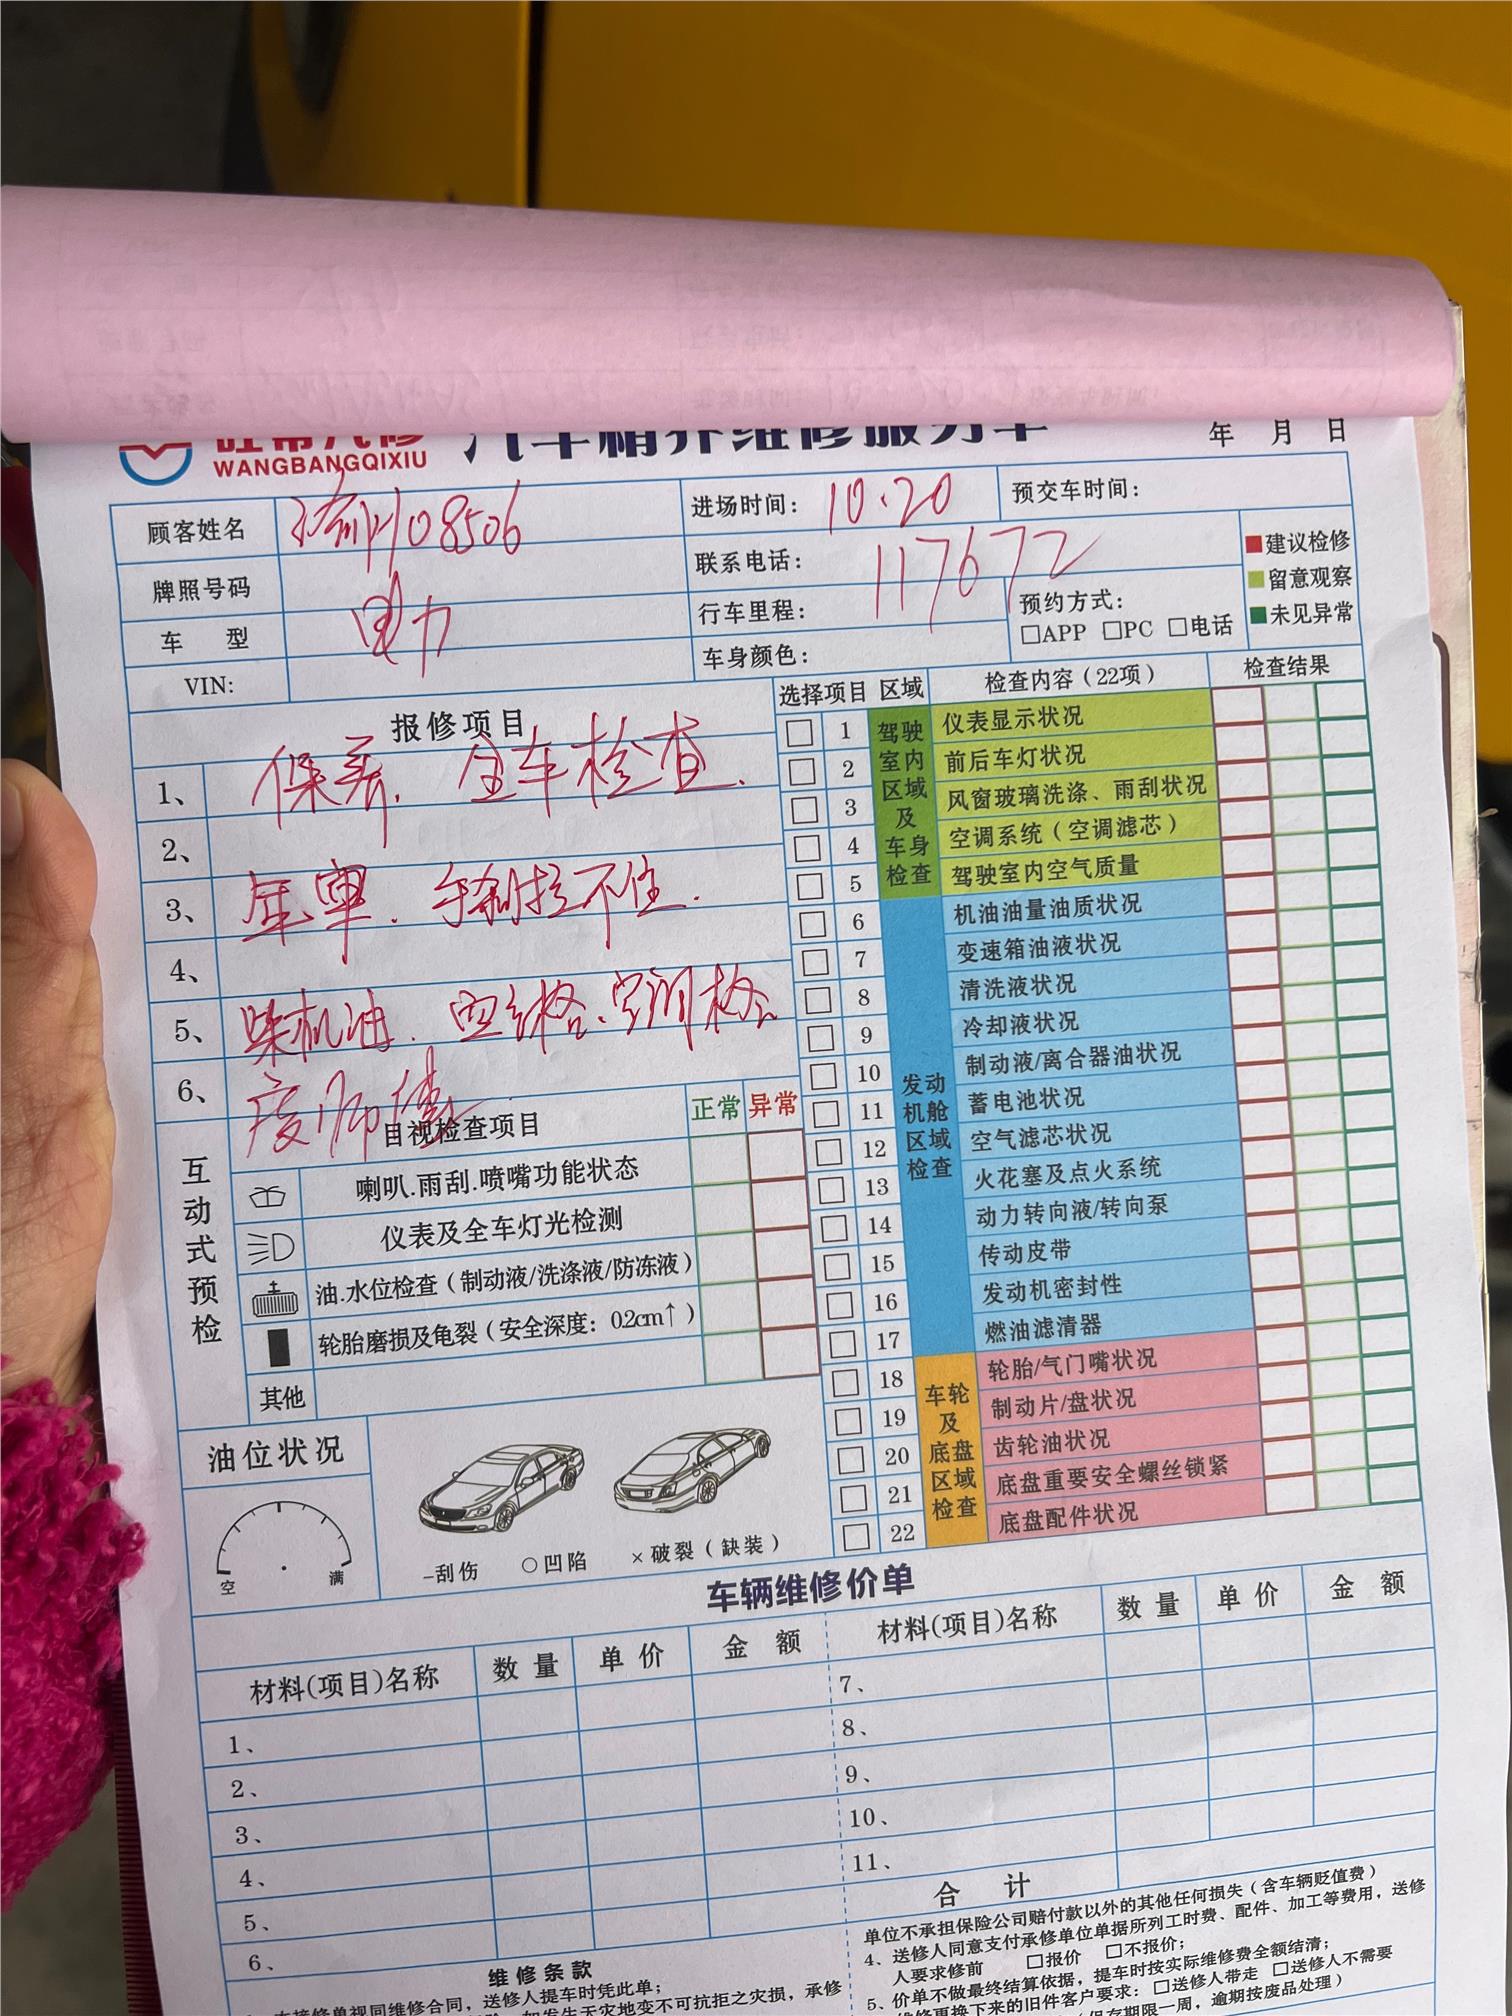 WANGBANGQIXIU
汽车精养维修服务单
年 月 日
顾客姓名
08506
进场时间: 10.20
预交车时间:
牌照号码
联系电话:
117672
车 型
电力
行车里程:
预约方式:
□APP □PC □电话
VIN:
车身颜色:
建议检修
留意观察
未见异常
报修项目
1、 保养. 全车检查.
2、
3、 手刹拉不住.
4、
5、 机油. 空调格
6、
选择项目 区域 检查内容(22项) 检查结果
驾驶室内区域及车身检查
1 仪表显示状况
2 前后车灯状况
3 风窗玻璃洗涤、雨刮状况
4 空调系统(空调滤芯)
5 驾驶室内空气质量
发动机舱区域检查
6 机油油量油质状况
7 变速箱油液状况
8 清洗液状况
9 冷却液状况
10 制动液/离合器油状况
11 蓄电池状况
12 空气滤芯状况
13 火花塞及点火系统
14 动力转向液/转向泵
15 传动皮带
16 发动机密封性
17 燃油滤清器
车轮及底盘区域检查
18 轮胎/气门嘴状况
19 制动片/盘状况
20 齿轮油状况
21 底盘重要安全螺丝锁紧
22 底盘配件状况
互动式预检
目视检查项目 正常 异常
喇叭.雨刮.喷嘴功能状态
仪表及全车灯光检测
油.水位检查(制动液/洗涤液/防冻液)
轮胎磨损及龟裂(安全深度: 0.2cm↑)
其他
油位状况
空 满
–刮伤 ○凹陷 ×破裂(缺装)
车辆维修价单
材料(项目)名称 数 量 单 价 金 额 材料(项目)名称 数 量 单 价 金 额
1、
2、
3、
4、
5、
6、
7、
8、
9、
10、
11、
合 计
维修条款
送修人提车时凭此单;
如发生天灾地变不可抗拒之灾损,承修
单位不承担保险公司赔付款以外的其他任何损失(含车辆贬值费)
4、送修人同意支付承修单位单据所列工时费、配件、加工等费用,送修
人要求修前 □报价 □不报价;
5、价单不做最终结算依据,提车时按实际维修费全额结清;
维修更换下来的旧件客户要求: □送修人带走 □送修人不需要
(保存期限一周,逾期按废品处理)